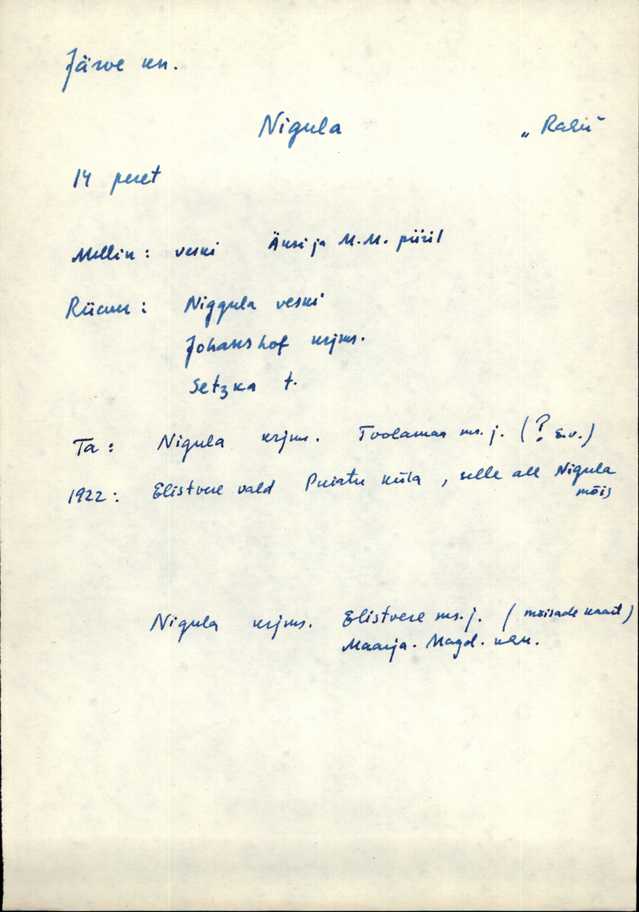 Järve kn.
Nigula
14 peret
Mellin: veski Äksi ja M.M. piiril
Rücker: Niggula veski
Johanshof krjms.
Setzka t.
Ta: Nigula krjms. Toolamaa ms. j. (? s.v.)
1922: Elistvere vald Puiatu küla, selle all Nigula
mõis
Nigula krjms. Elistvere ms. j. (mõisade kaart)
Maarja-Magd. khk.